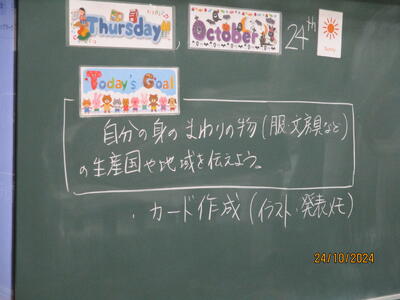 Thursday, October 24th
Sunny
Today's Goal
自分の身のまわりの物(服・文房具など)
の生産国や地域を伝えよう。
・カード作成(イラスト・発表メモ)
24/10/2024